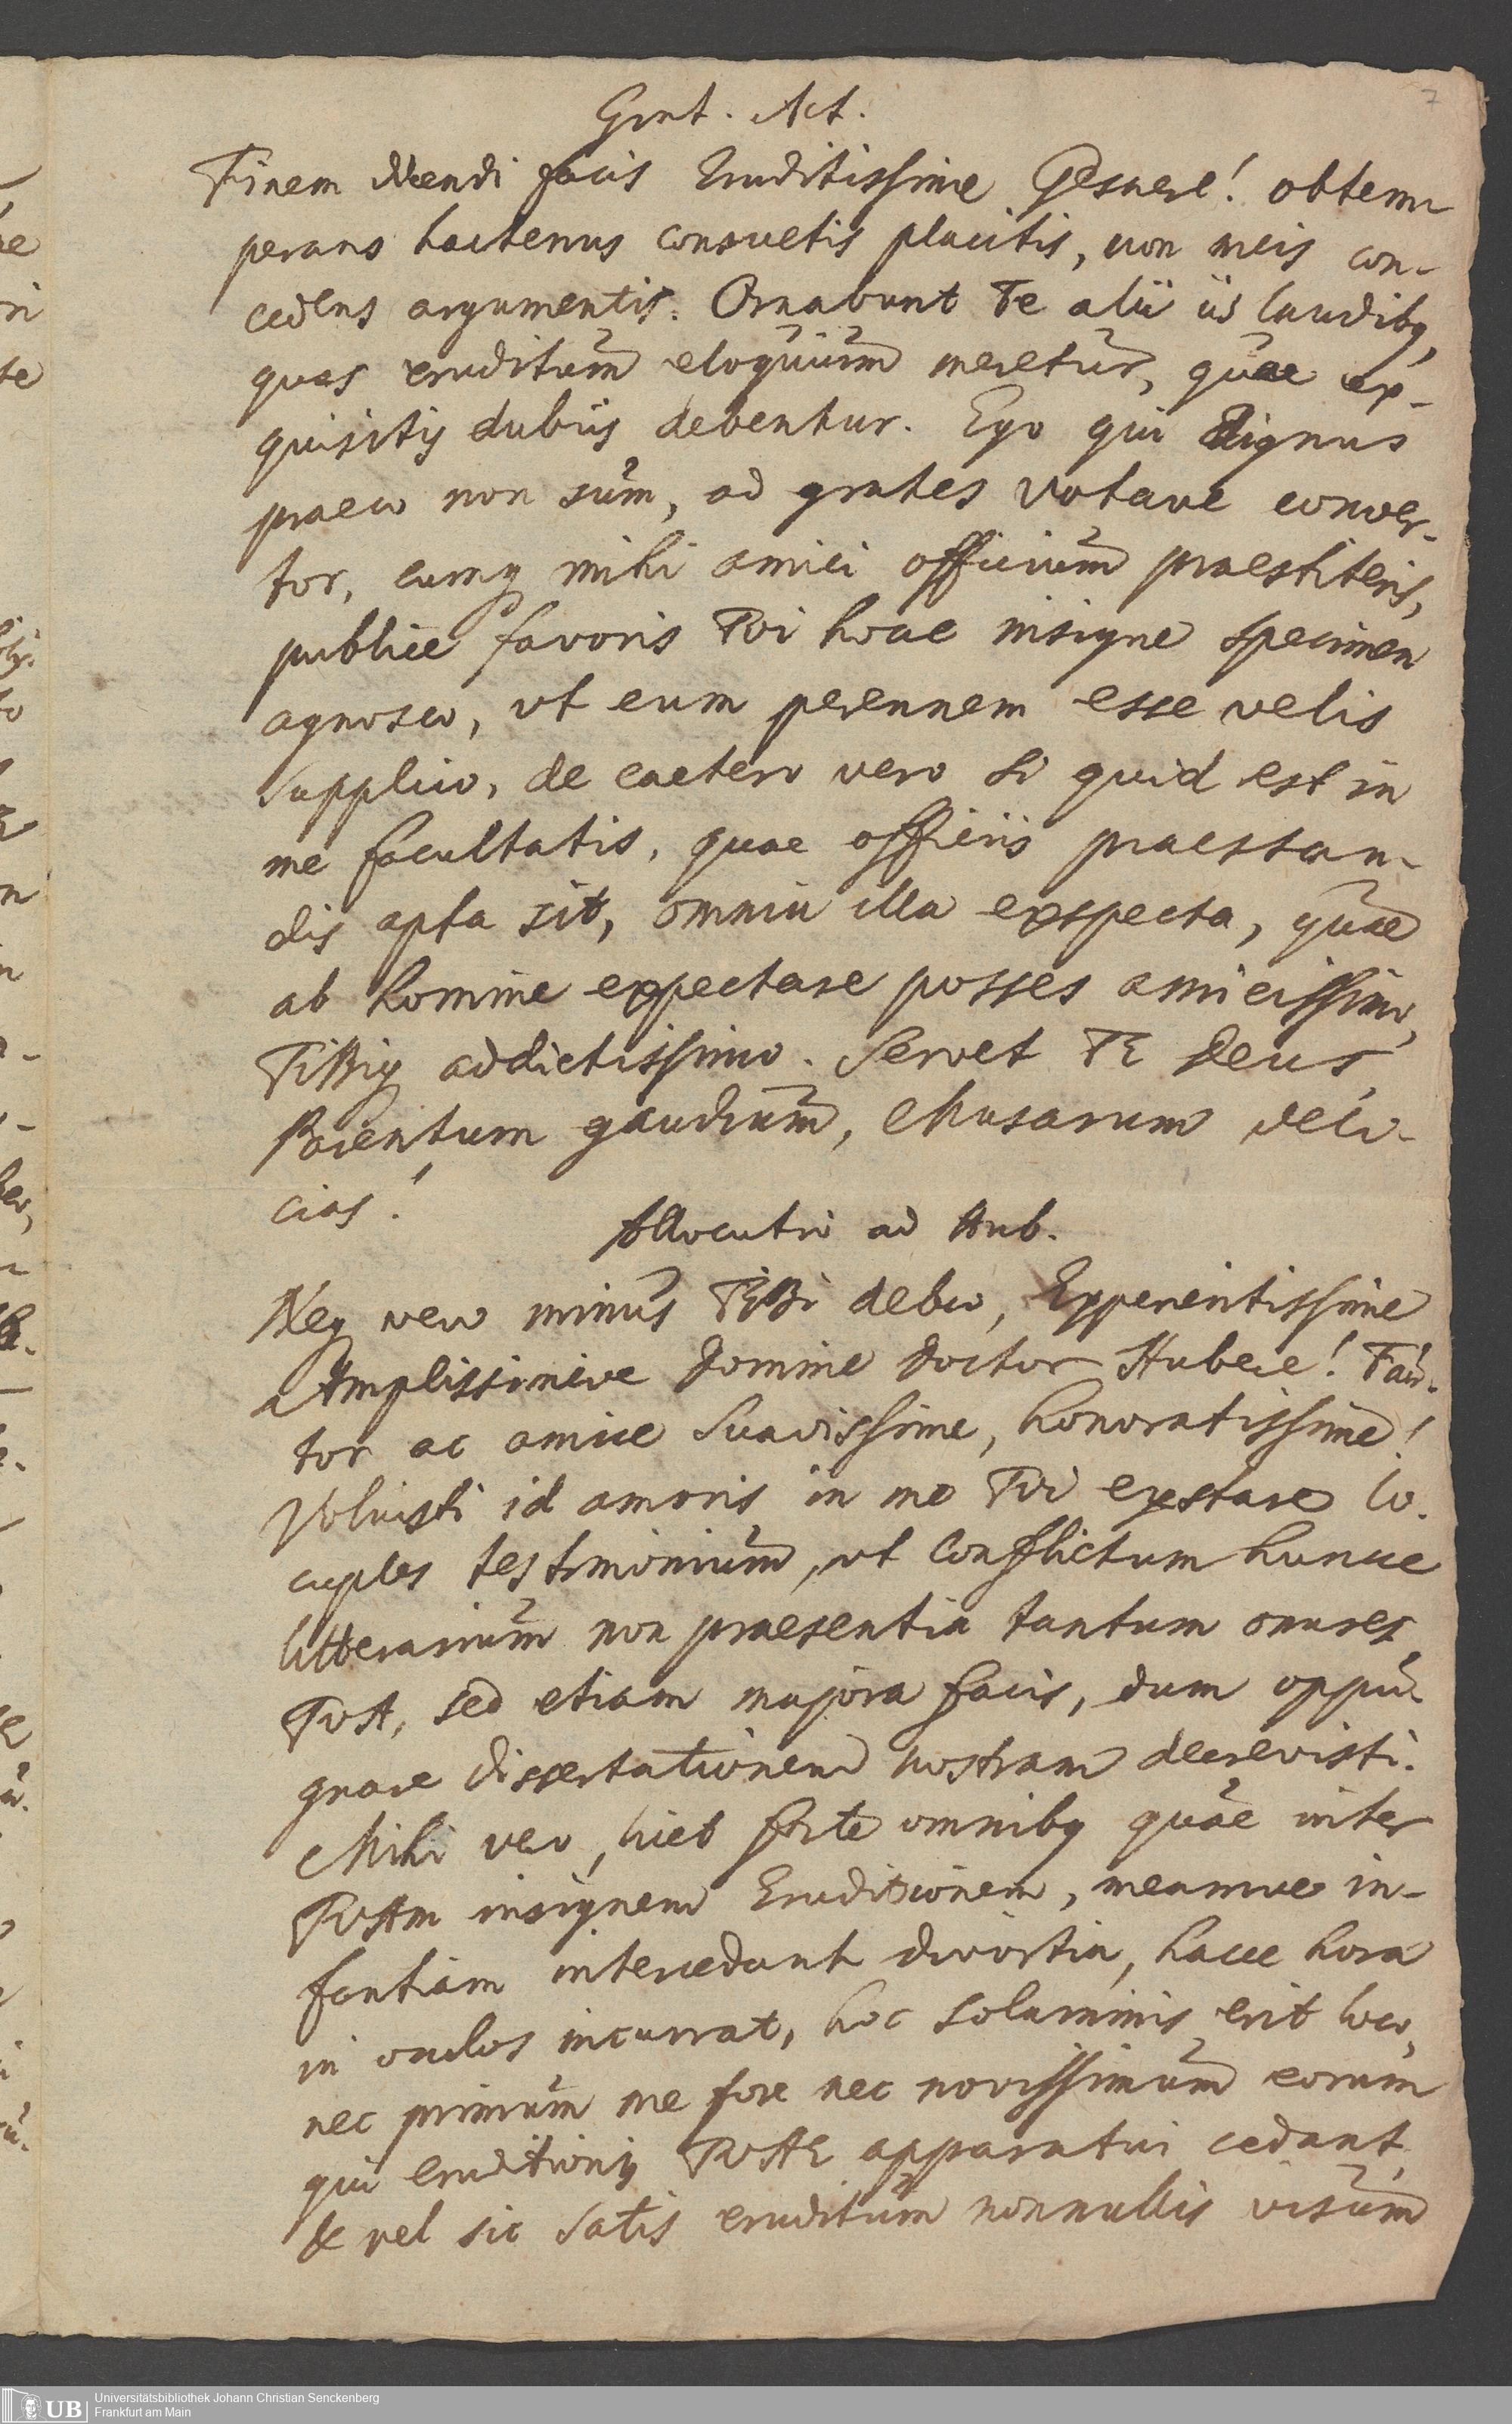 7
Grat. Act.
Finem dicendi facis Eruditissime Gesnere! obtem-
perans hactenus consuetis placitis, non meis con-
cedens argumentis. Ornabunt Te alii iis laudibq,
quas eruditum eloquium meretur, quae ex-
quisitis dubiis debentur. Ego qui dignus
praeco non sum, ad grates votave conver-
tor, cumq mihi amici officium praestiteris,
publice favoris Tui hocce insigne specimen
agnosco, ut eum perennem esse velis
supplico, de caetero vero si quid est in
me facultatis, quae officiis praestan-
dis apta sit, omnia illa exspecta, quae
ab homine expectare posses amicissimo,
TiBiq addictissimo. Servet TE Deus
Parentum gaudium, Musarum deli-
cias!
Allocutio ad Hub.
Neq vero minus TiBi debeo, Experientissime
Amplissimeve Domine Doctor Hubere! Fau-
tor ac amice Suavissime, honoratissime!
Voluisti id amoris in me Tui exstare lo-
cuples testimonium, ut conflictum hunce
litterarium non praesentia tantum ornares
TuA, sed etiam majora facis, dum oppu-
gnare dissertationem nostram decrevisti.
Mihi vero, licet forte omnibq quae inter
TuAm insignem Eruditionem, meamve in-
fantiam intercedant divortia, hacce hora
in oculos incurrat, hoc solaminis erit loco,
nec primum me fore nec novissimum eorum
qui eruditionis TuAE apparatui cedant,
& vel sic satis eruditum nonnullis visum
Universitätsbibliothek Johann Christian Senckenberg
Frankfurt am Main
UB